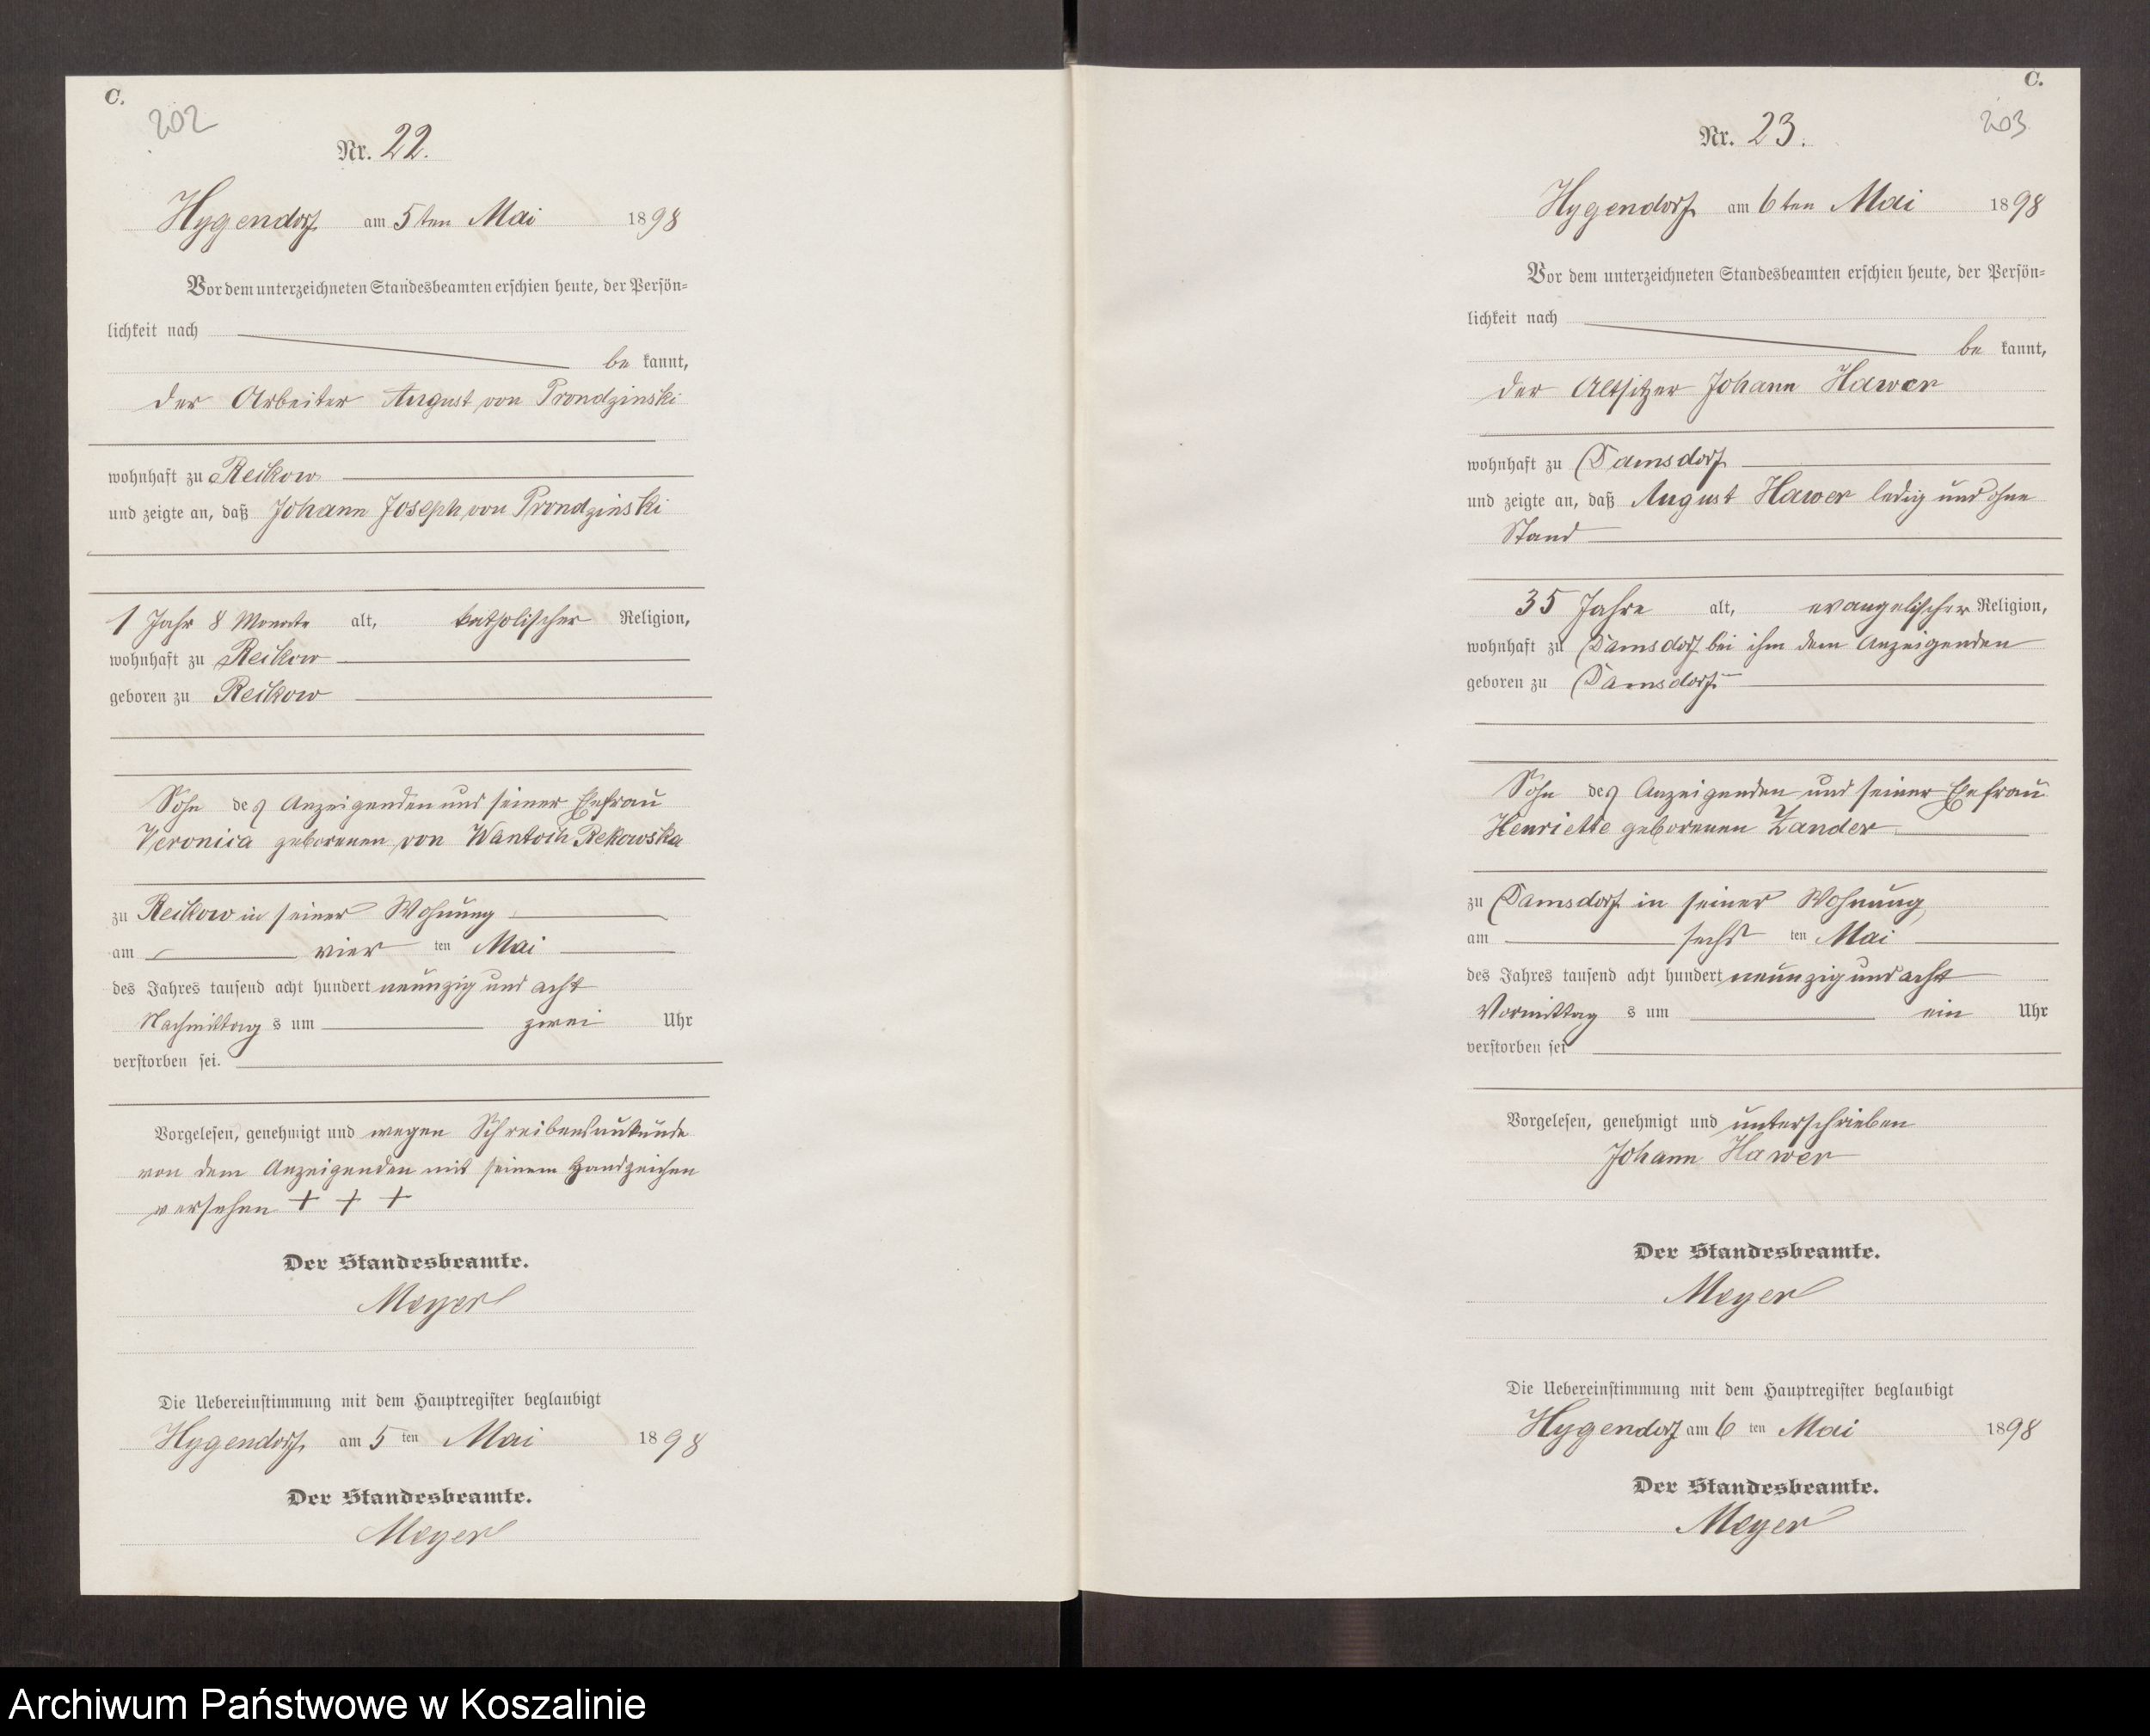 C.
202
Nr. 22.
Hygendorf am 5ten Mai 1898
Vor dem unterzeichneten Standesbeamten erschien heute, der Persön-
lichkeit nach
be kannt,
der Arbeiter August von Prondzinski
wohnhaft zu Reckow
und zeigte an, daß Johann Joseph von Prondzinski
1 Jahr 8 Monate alt, katholischer Religion,
wohnhaft zu Reckow
geboren zu Reckow
Sohn des Anzeigenden und seiner Ehefrau
Veronica geborenen von Wantoch Rekowska
zu Reckow in seiner Wohnung
am vier ten Mai
des Jahres tausend acht hundert neunzig und acht
Nachmittag s um zwei Uhr
verstorben sei.
Vorgelesen, genehmigt und wegen Schreibensunkunde
von dem Anzeigenden mit seinem Handzeichen
versehen + + +
Der Standesbeamte.
Meyer
Die Uebereinstimmung mit dem Hauptregister beglaubigt
Hygendorf am 5 ten Mai 1898
Der Standesbeamte.
Meyer
C.
203
Nr. 23.
Hygendorf am 6ten Mai 1898
Vor dem unterzeichneten Standesbeamten erschien heute, der Persön-
lichkeit nach
be kannt,
der Altsitzer Johann Hawer
wohnhaft zu Damsdorf
und zeigte an, daß August Hawer ledig und ohne
Stand
35 Jahre alt, evangelischer Religion,
wohnhaft zu Damsdorf bei ihm dem Anzeigenden
geboren zu Damsdorf
Sohn des Anzeigenden und seiner Ehefrau
Henriette geborenen Zander
zu Damsdorf in seiner Wohnung
am sechs ten Mai
des Jahres tausend acht hundert neunzig und acht
Vormittag s um ein Uhr
verstorben sei
Vorgelesen, genehmigt und unterschrieben
Johann Hawer
Der Standesbeamte.
Meyer
Die Uebereinstimmung mit dem Hauptregister beglaubigt
Hygendorf am 6 ten Mai 1898
Der Standesbeamte.
Meyer
Archiwum Państwowe w Koszalinie